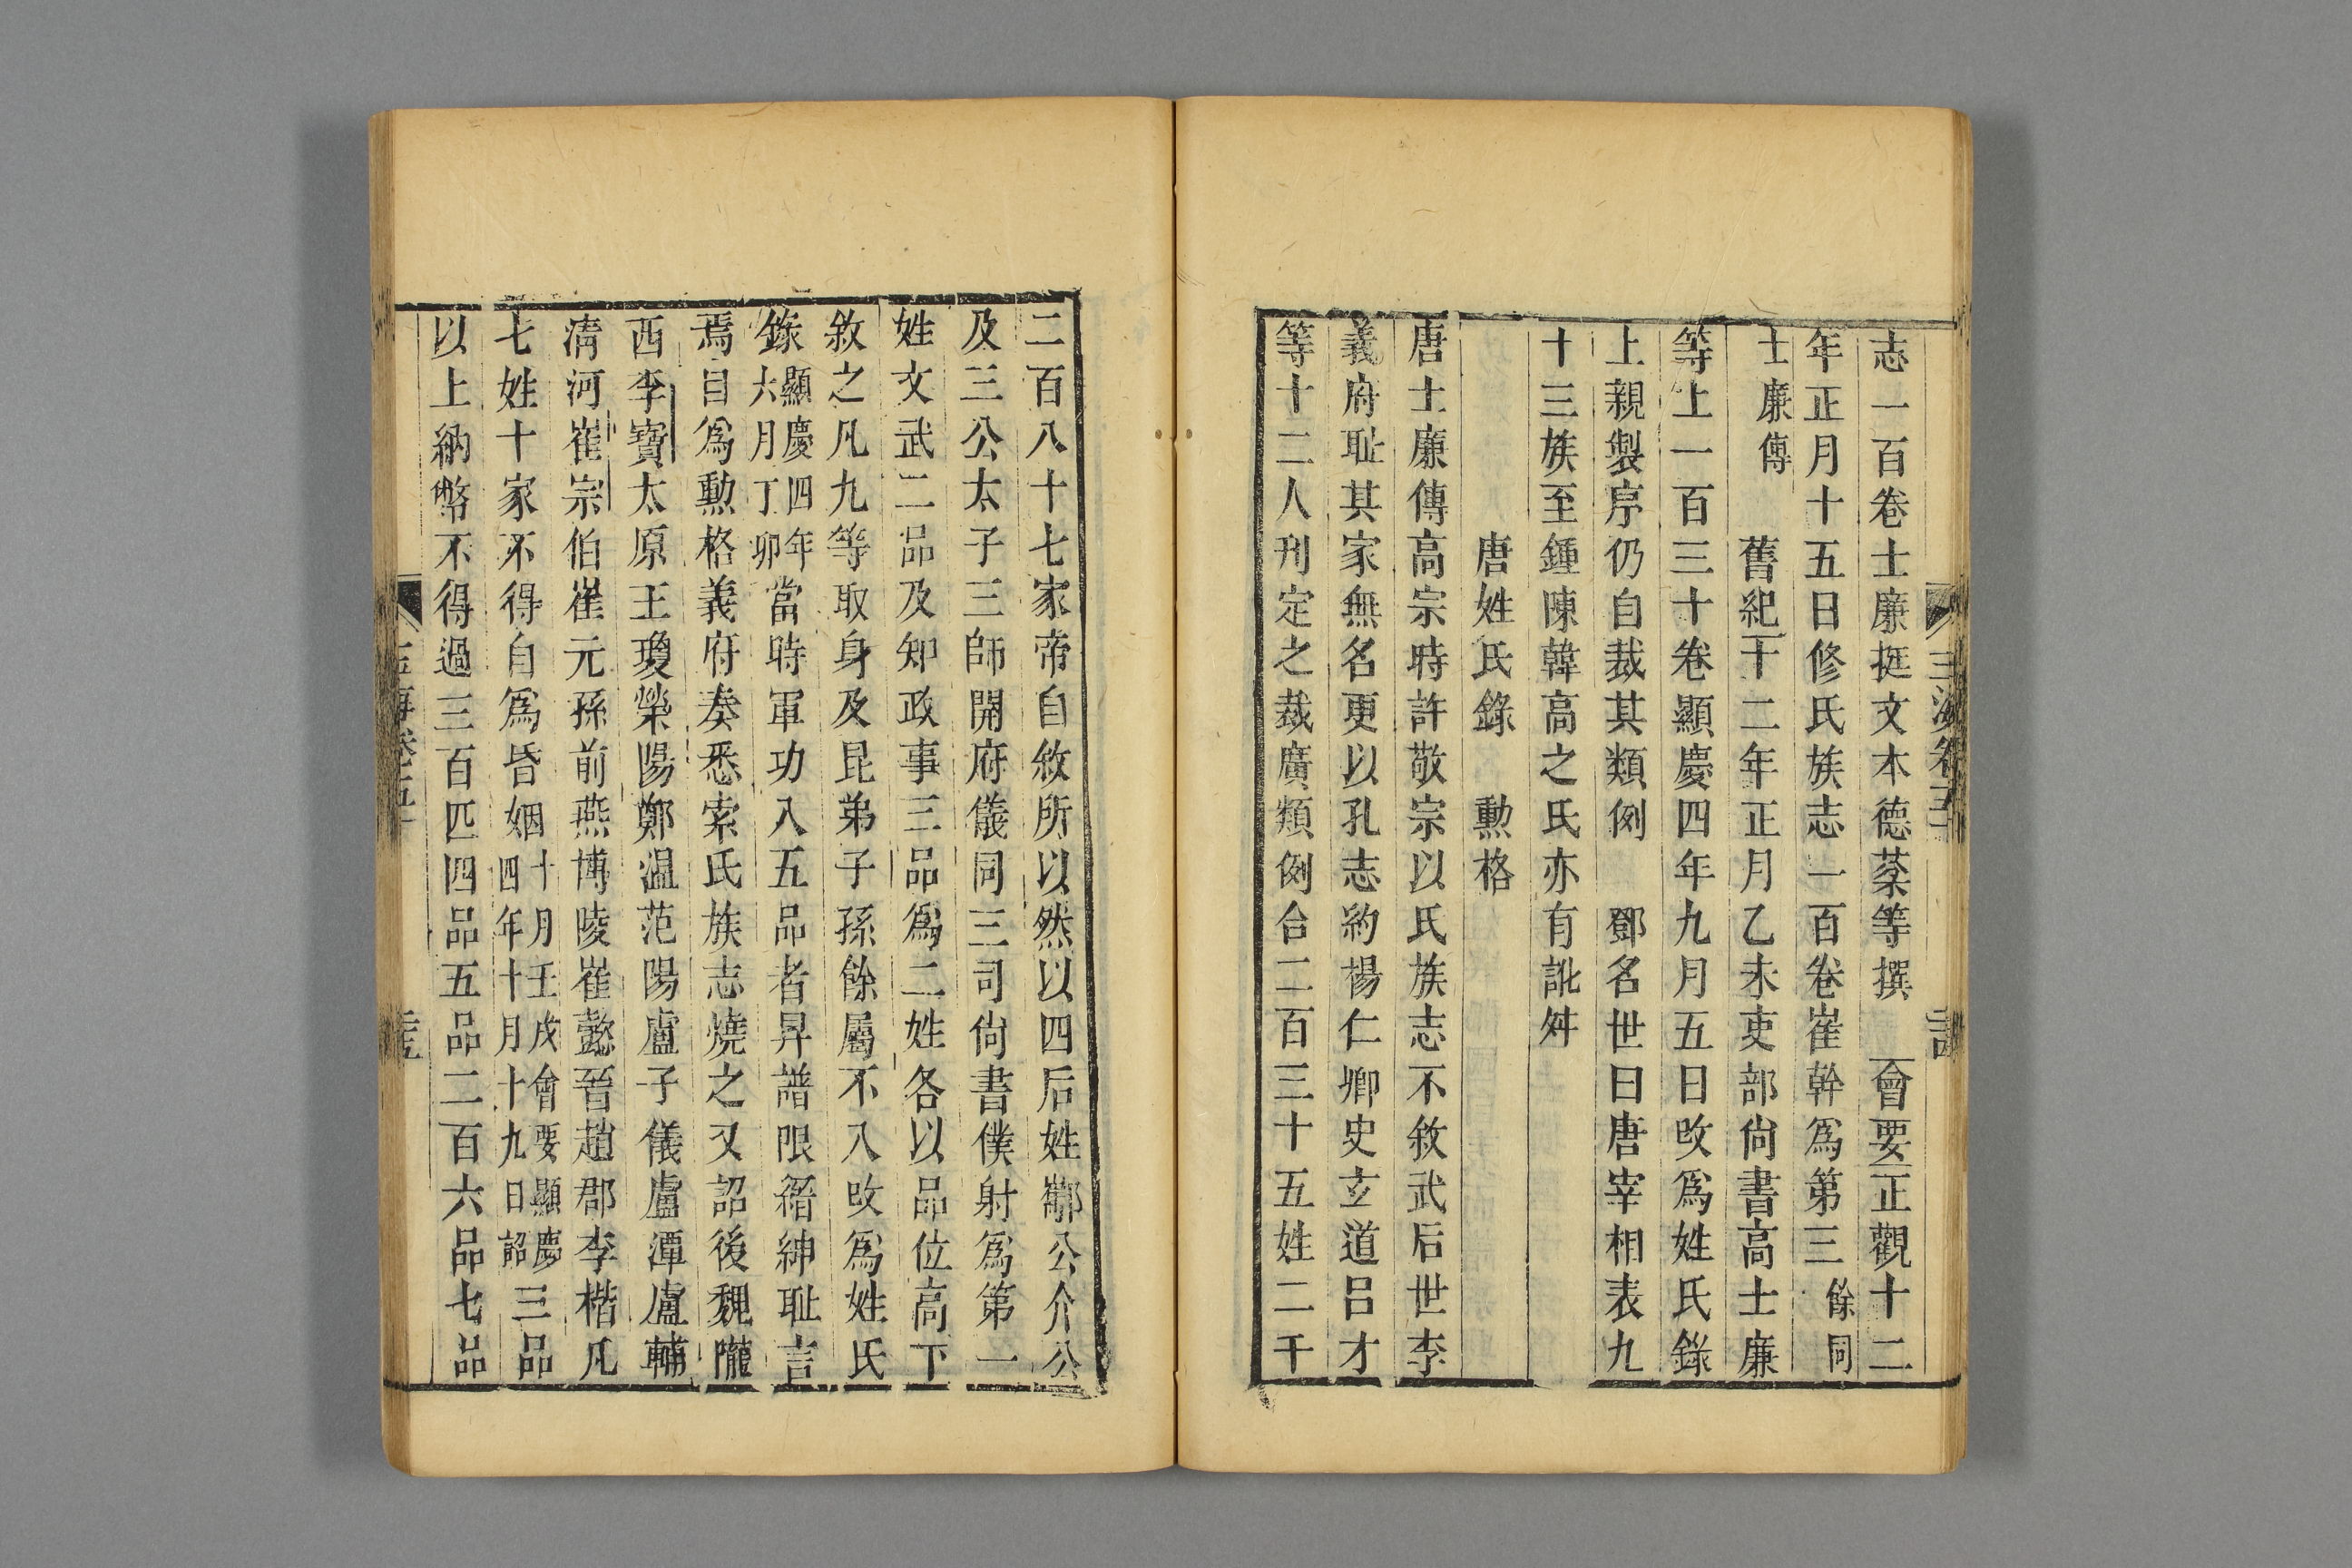 志一百卷士廉挺文本德棻等撰　會要正觀十二
年正月十五日修氏族志一百卷崔幹爲第三餘同
士廉傳　舊紀十二年正月乙未吏部尙書高士廉
等上一百三十卷顯慶四年九月五日攺爲姓氏錄
上親製序仍自裁其類例　鄧名世曰唐宰相表九
十三族至鍾陳韓高之氏亦有訛舛
唐姓氏錄　勲格
唐士廉傳高宗時許敬宗以氏族志不敘武后世李
義府耻其家無名更以孔志約楊仁卿史玄道呂才
等十二人刊定之裁廣類例合二百三十五姓二千
二百八十七家帝自敘所以然以四后姓酅公介公
及三公太子三師開府儀同三司尙書僕射爲第一
姓文武二品及知政事三品爲二姓各以品位高下
敘之凡九等取身及昆弟子孫餘屬不入攺爲姓氏
錄顯慶四年六月丁卯當時軍功入五品者昇譜限縉紳耻言
焉目爲勲格義府奏悉索氏族志燒之又詔後魏隴
西李寶太原王瓊滎陽鄭溫范陽盧子儀盧潭盧輔
淸河崔宗伯崔元孫前燕博陵崔懿晉趙郡李楷凡
七姓十家不得自爲昏姻十月壬戌會要顯慶四年十月十九日詔三品
以上納幣不得過三百匹四品五品二百六品七品